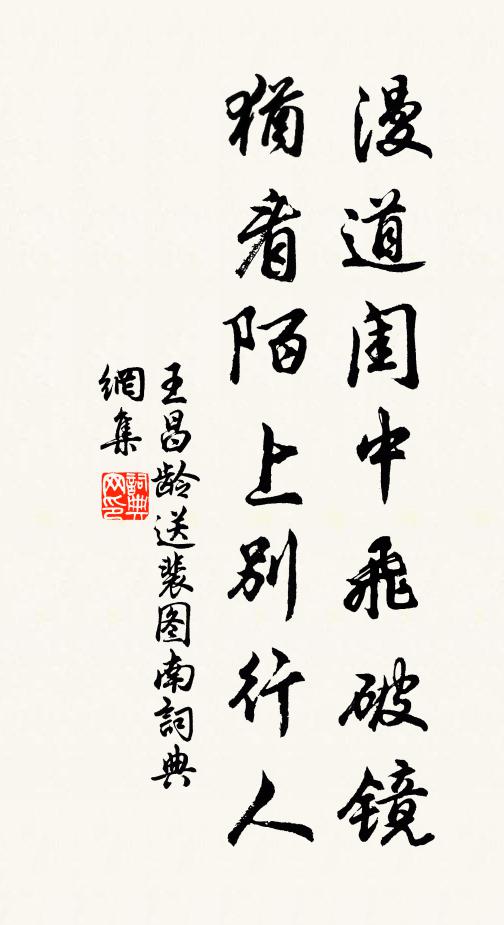 漫道闺中飛破镜
猶看陌上别行人
王昌龄送裴图南詞典
網集
詞典
网印